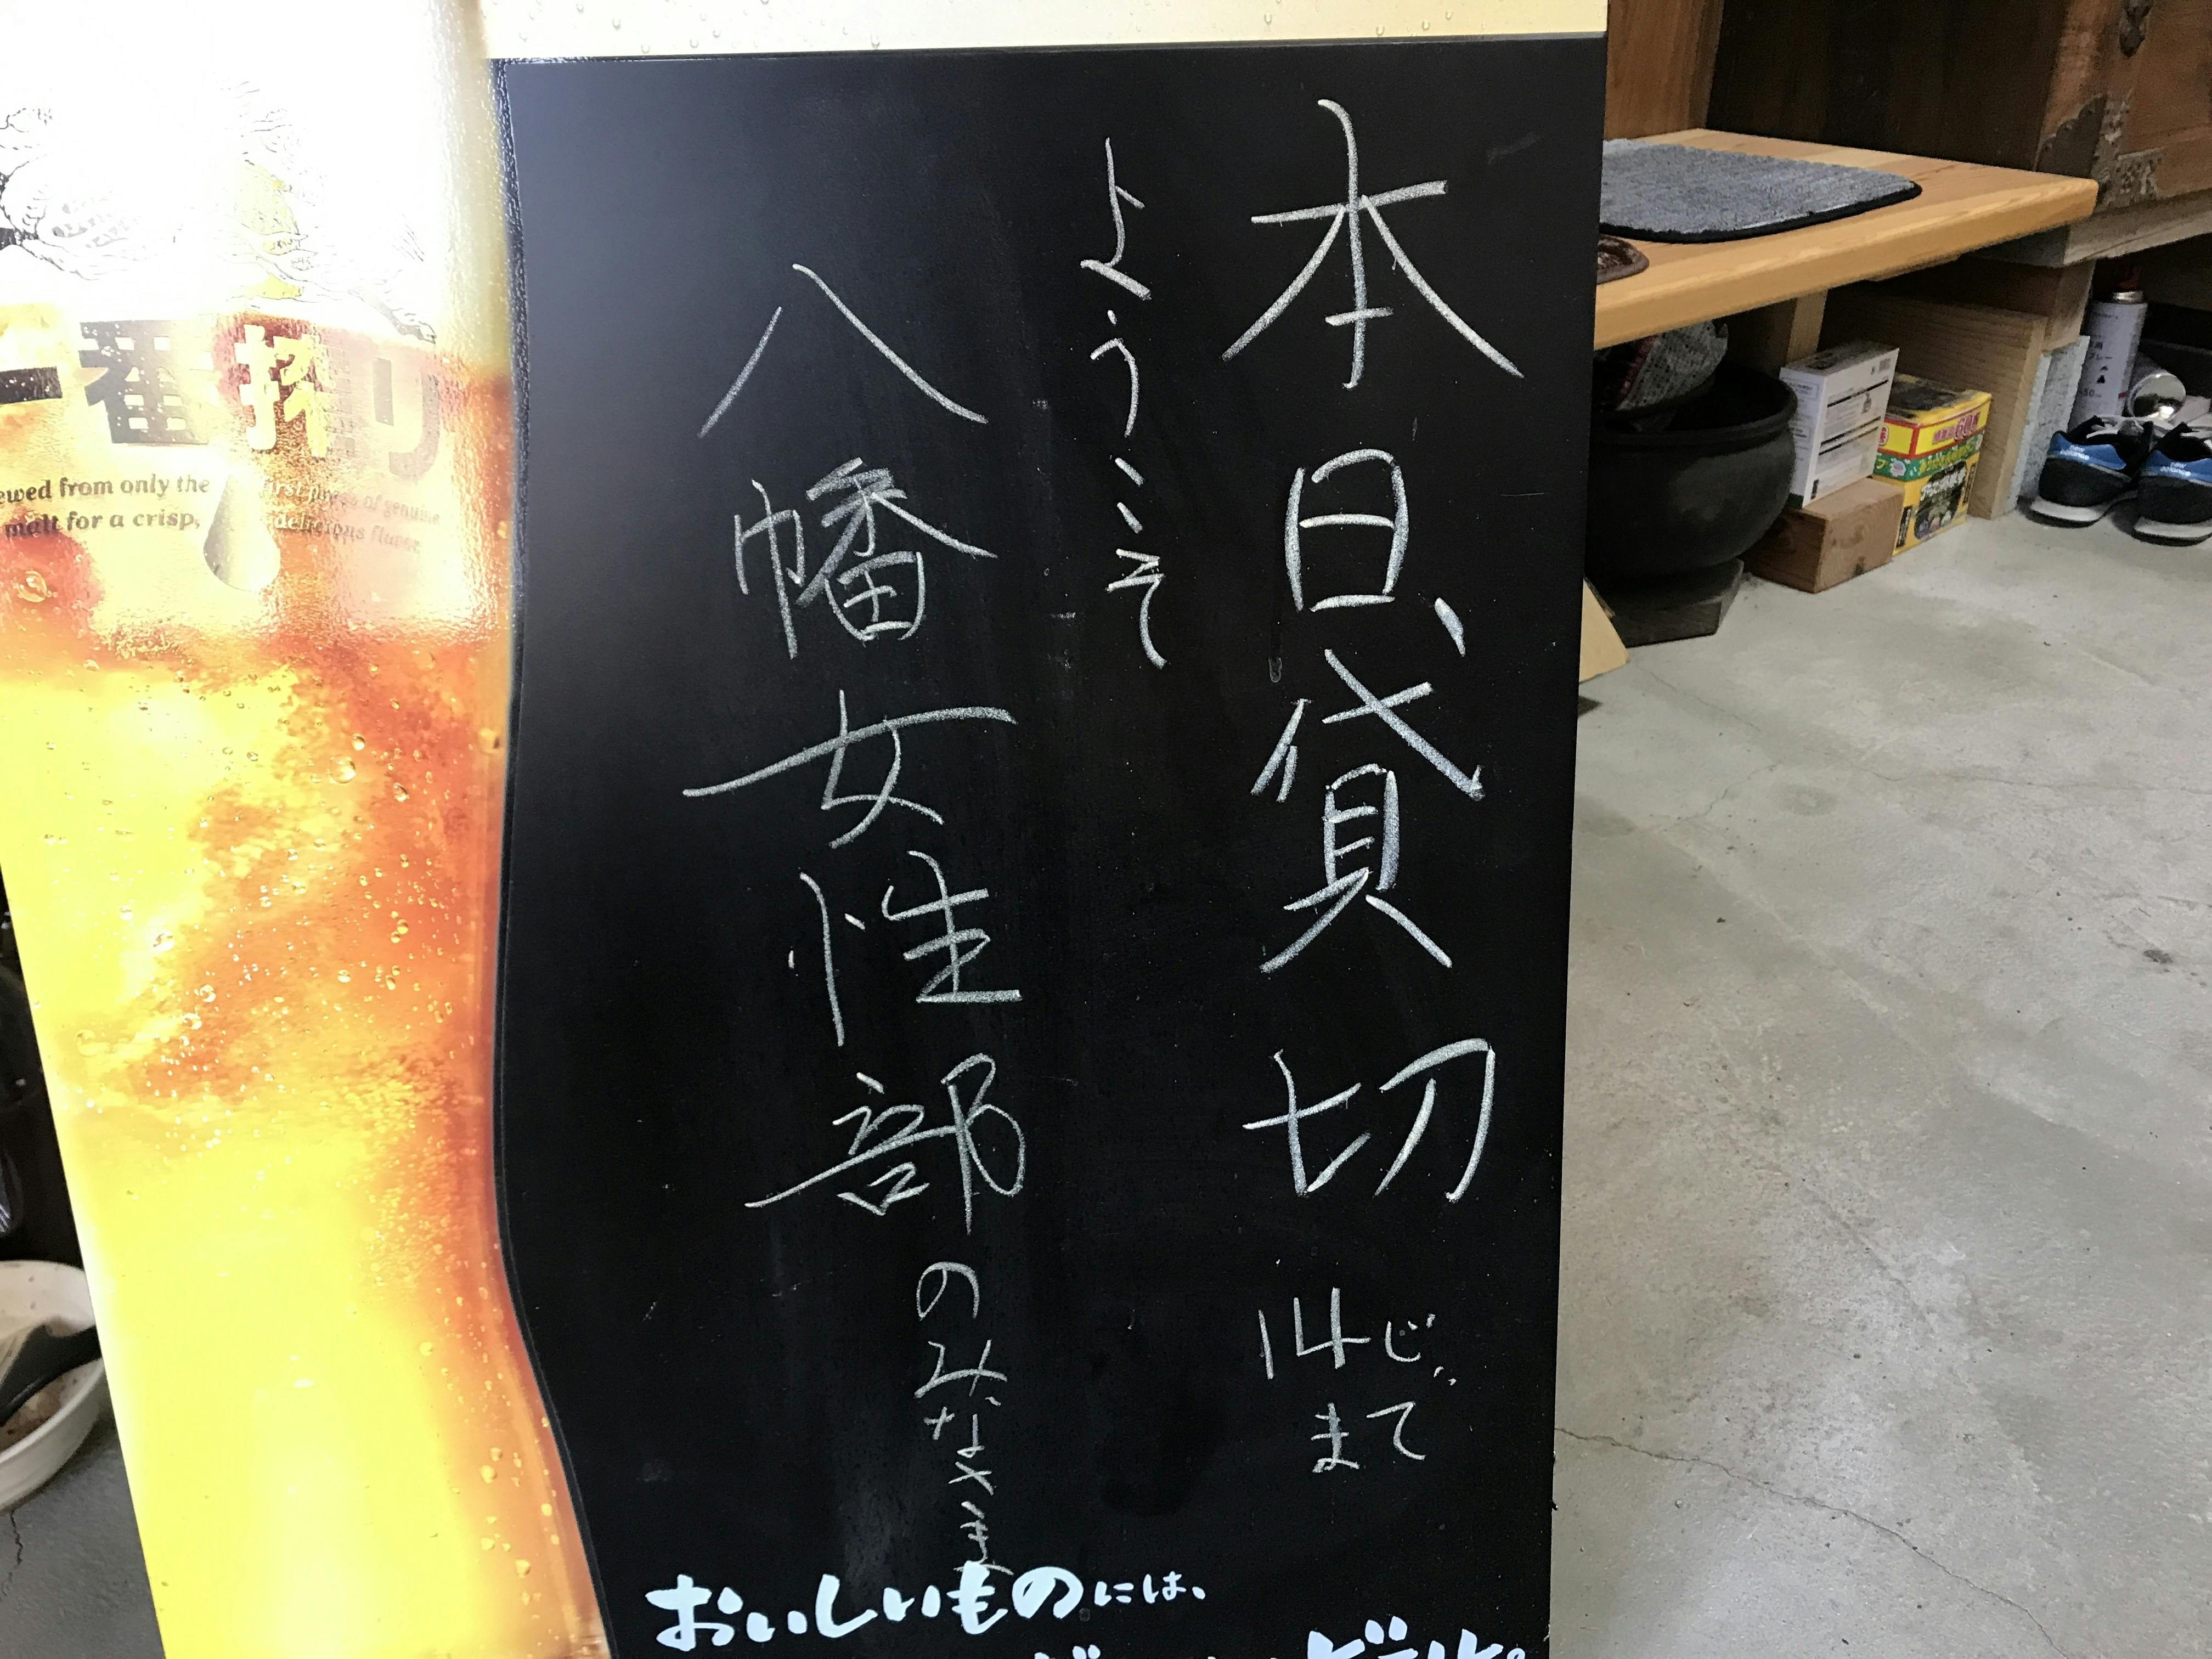 本日、貸切 14じまで
ようこそ
八幡女性部のみなさま
おいしいものには、
ビール。
一番搾り
ewed from only the first press of genuine
malt for a crisp, delicious flavor